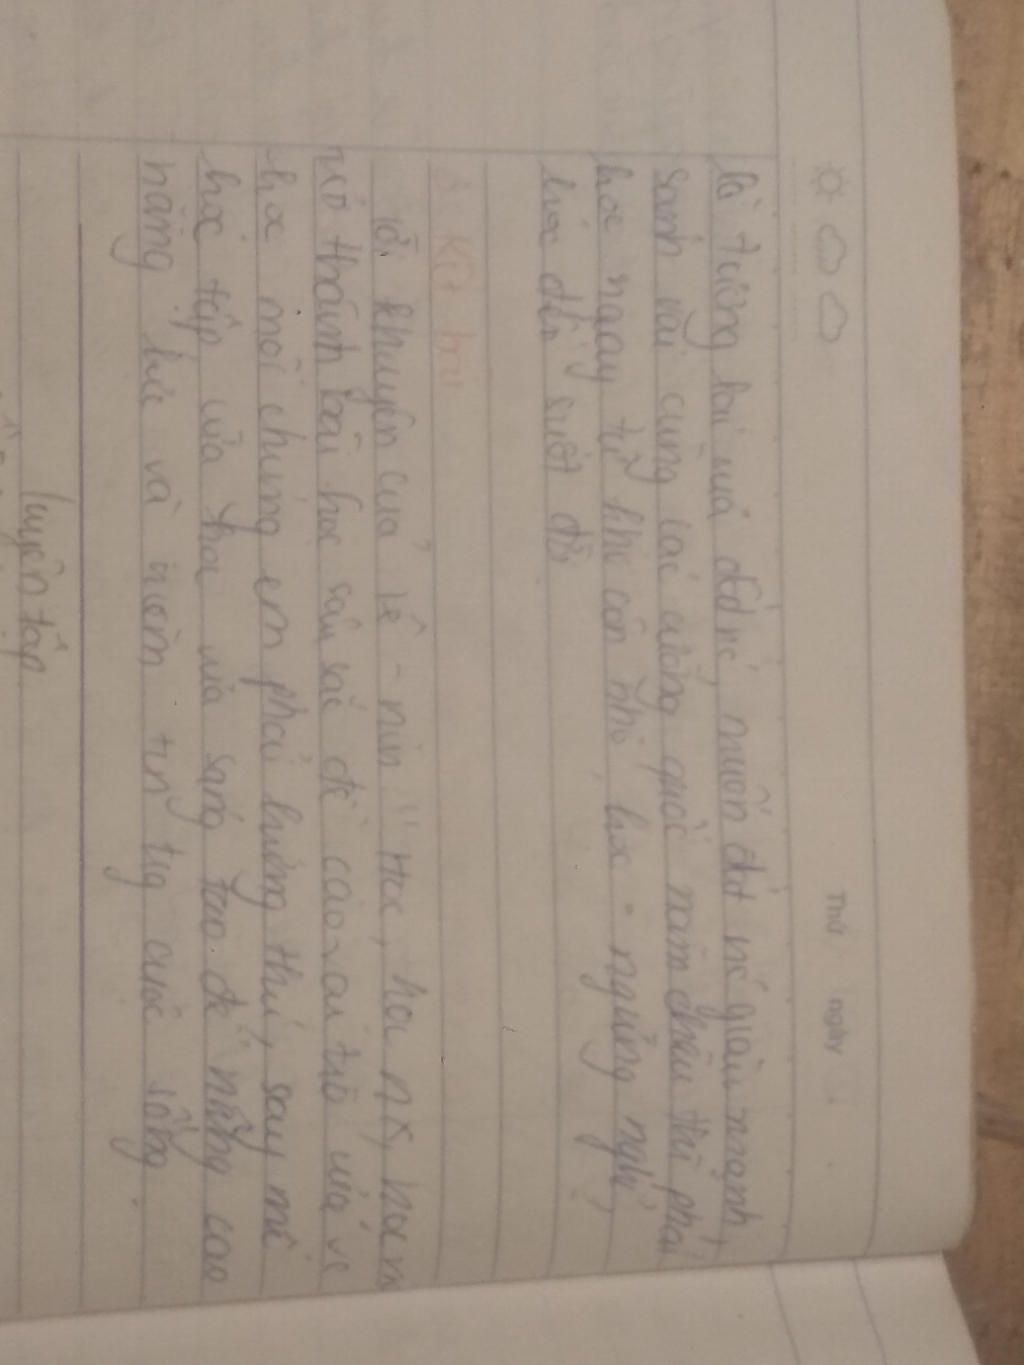 Thứ ngày
là tương lai của đất nước, muốn đất nc giàu mạnh,
sánh vai cùng các cường quốc năm châu thì phải
học ngay từ khi còn nhỏ, học ngừng nghỉ,
học đến suốt đời
3. Kết bài
Lời khuyên của Lê-nin "Học, học nx, học m
trở thành bài học sâu sắc đề cao vai trò của vc
học mỗi chúng em phải hứng thú, say mê
học tập vừa học vừa sáng tạo để nâng cao
năng lực và niềm tin tog cuộc sống.
luyện tập